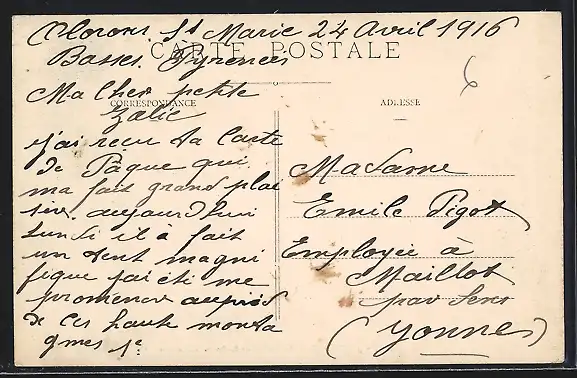 Oloron. St Marie 24 Avril 1916
Basses. Pyrenées
CARTE POSTALE
6
Ma cher petite
Zalie
CORRESPONDANCE
ADRESSE
j'ai reçu ta carte
de Pâque qui
ma fait grand plai
sir. aujourd'hui
lundi il à fait
un tent magni
fique j'ai été me
promener auprès
de ces haute monta
gnes
Madame
Emile Pigot
Employée à
Maillot
par Sens
(Yonne)